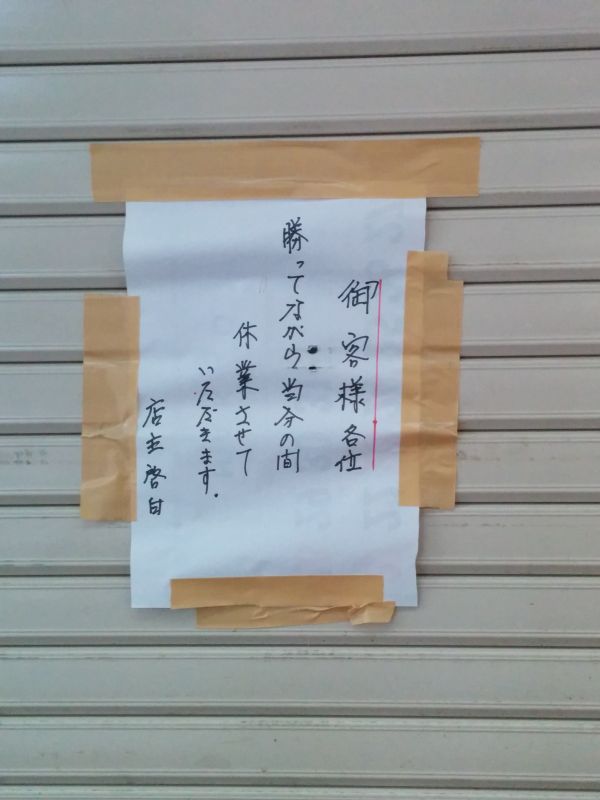 御客様各位
勝ってながら当分の間
休業させて
いただきます.
店主啓白